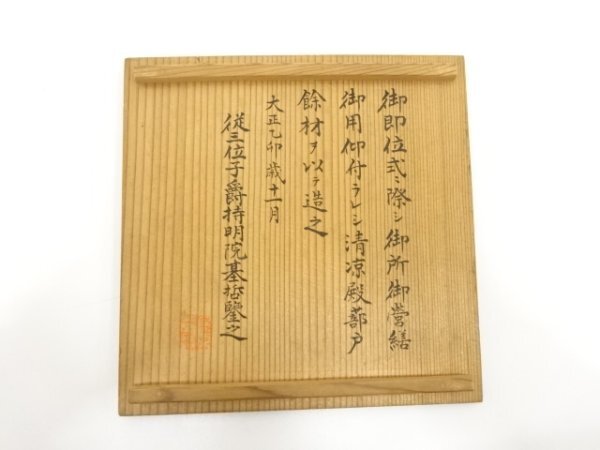 御即位式ニ際シ御所御営繕
御用仰付ラレシ清凉殿蔀戸
餘材ヲ以テ造之
大正乙卯歳十一月
従三位子爵持明院基哲鑒之